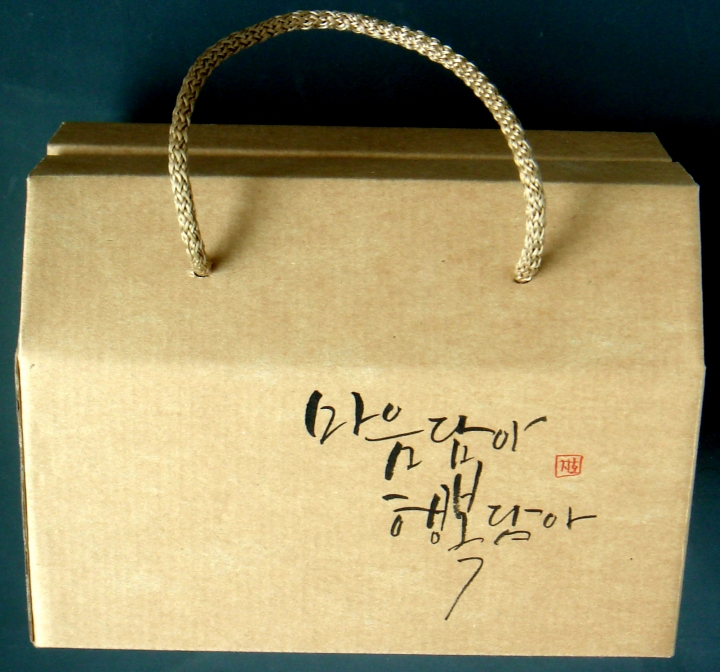 마음담아
행복담아